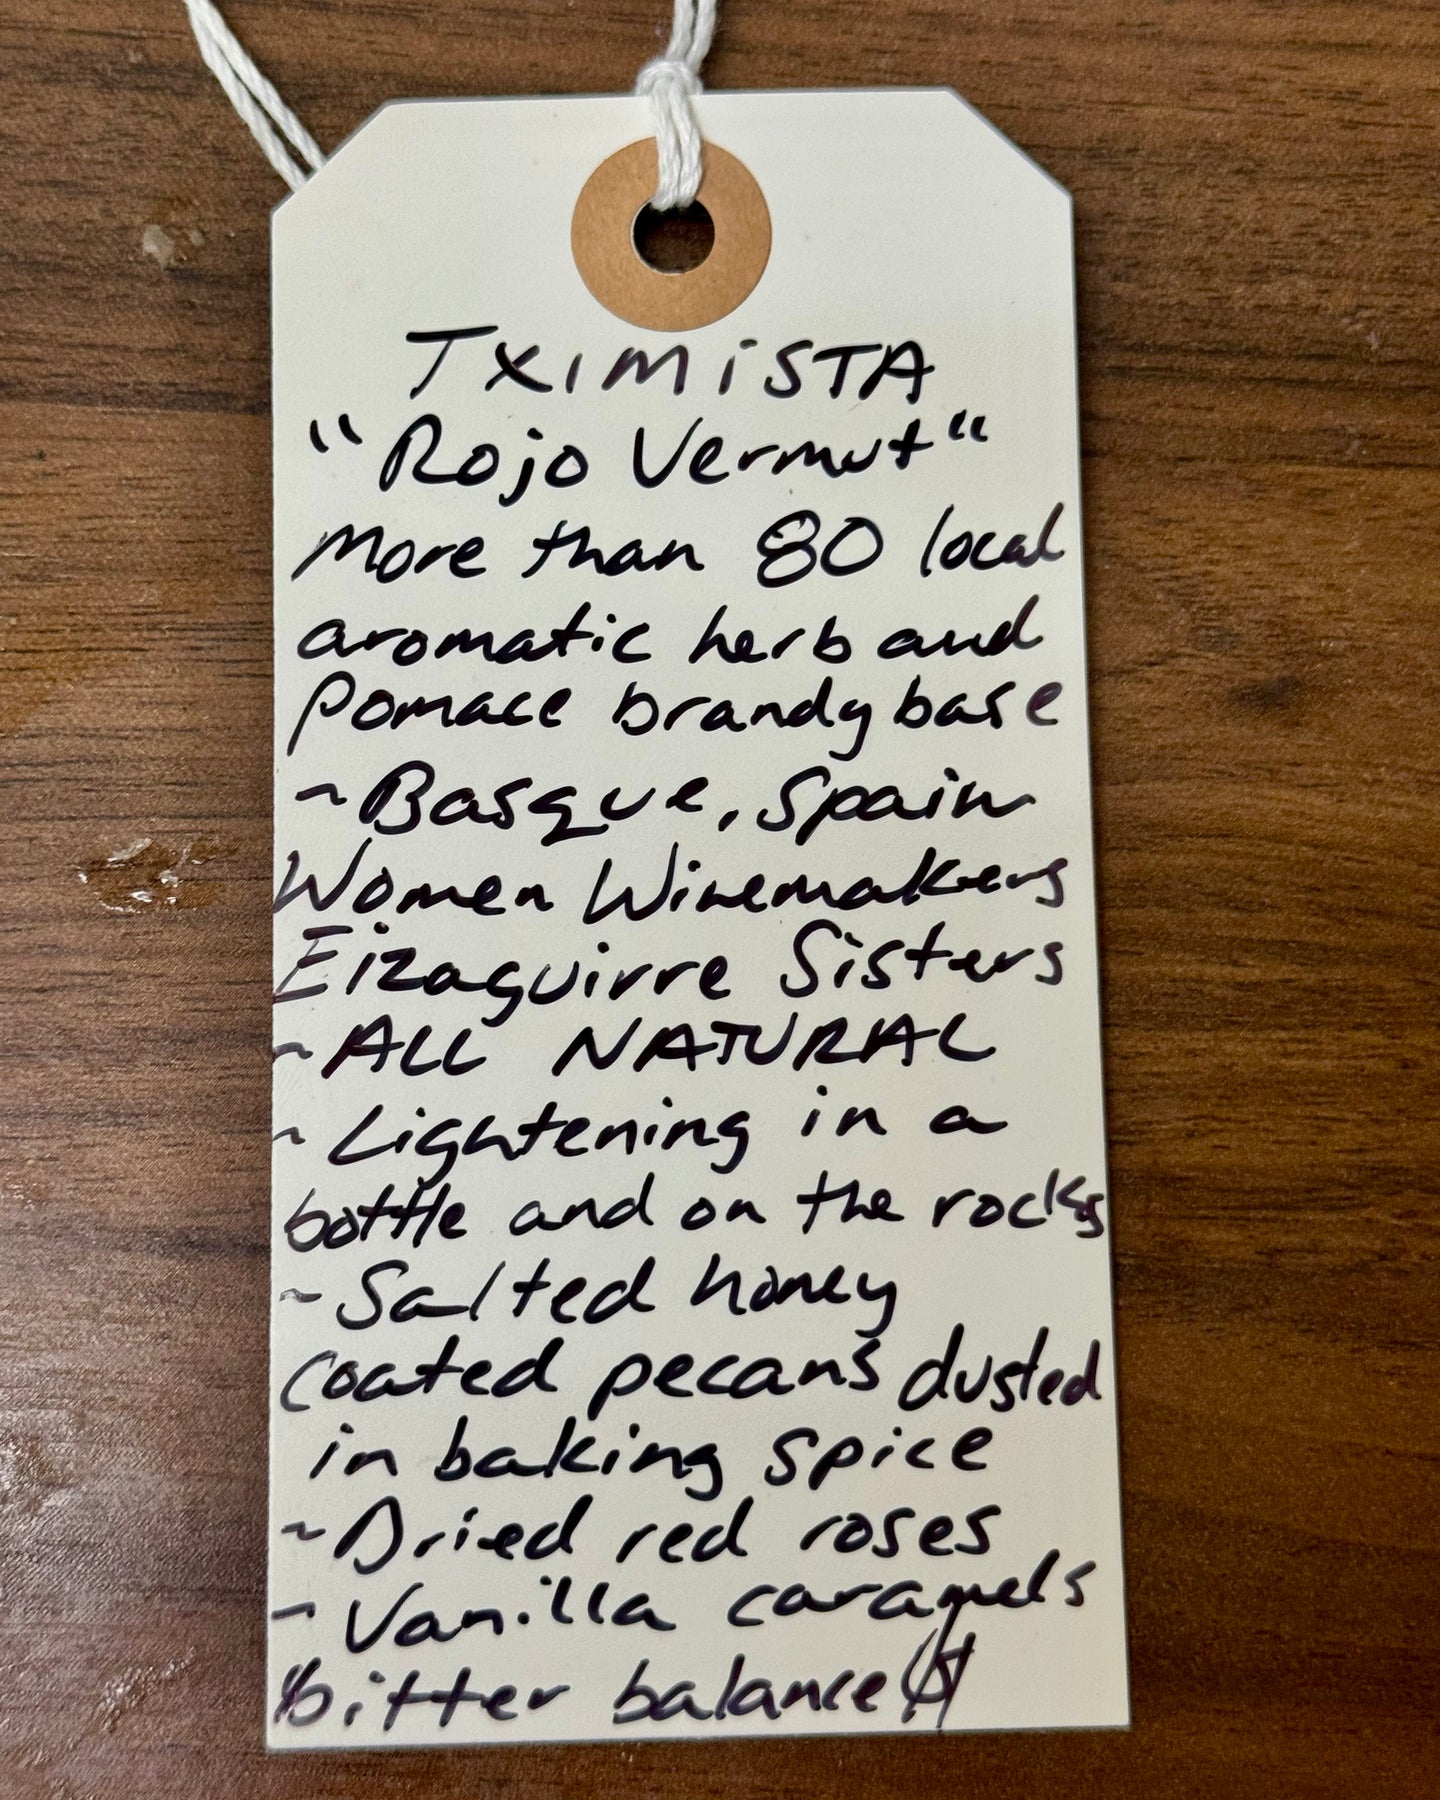 TXIMISTA
"Rojo Vermut"
More than 80 local
aromatic herb and
Pomace brandy base
~Basque, Spain
Women Winemakers
Eizaguirre Sisters
~ALL NATURAL
~Lightening in a
bottle and on the rocks
~Salted honey
coated pecans dusted
in baking spice
~Dried red roses
~Vanilla caramels
bitter balance